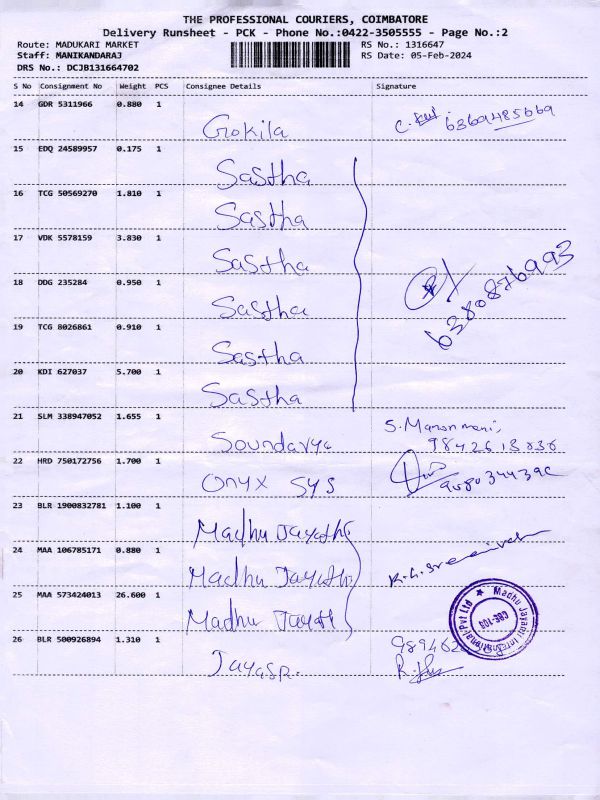 THE PROFESSIONAL COURIERS, COIMBATORE
Delivery Runsheet - PCK - Phone No.:0422-3505555 - Page No.:2
Route: MADUKARI MARKET RS No.: 1316647
Staff: MANIKANDARAJ RS Date: 05-Feb-2024
DRS No.: DCJB131664702
S No Consignment No Weight PCS Consignee Details Signature
14 GDR 5311966 0.880 1
Gokila C. 6369485669
15 EDQ 24589957 0.175 1
Sastha
16 TCG 50569270 1.810 1
Sastha
17 VDK 5578159 3.830 1
Sastha
18 DDG 235284 0.950 1
Sastha 6380876993
19 TCG 8026861 0.910 1
Sastha
20 KDI 627037 5.700 1
Sastha
21 SLM 338947052 1.655 1
Soundarya S. Manonmani,
98426
22 HRD 750172756 1.700 1
Onyx SYS
23 BLR 1900832781 1.100 1
Madhu Jayathi
24 MAA 106785171 0.880 1
Madhu Jayathi
25 MAA 573424013 26.600 1
Madhu Jayathi
Madhu Jayanti International Pvt Ltd
CBE-103
26 BLR 500926894 1.310 1
Jayasr.